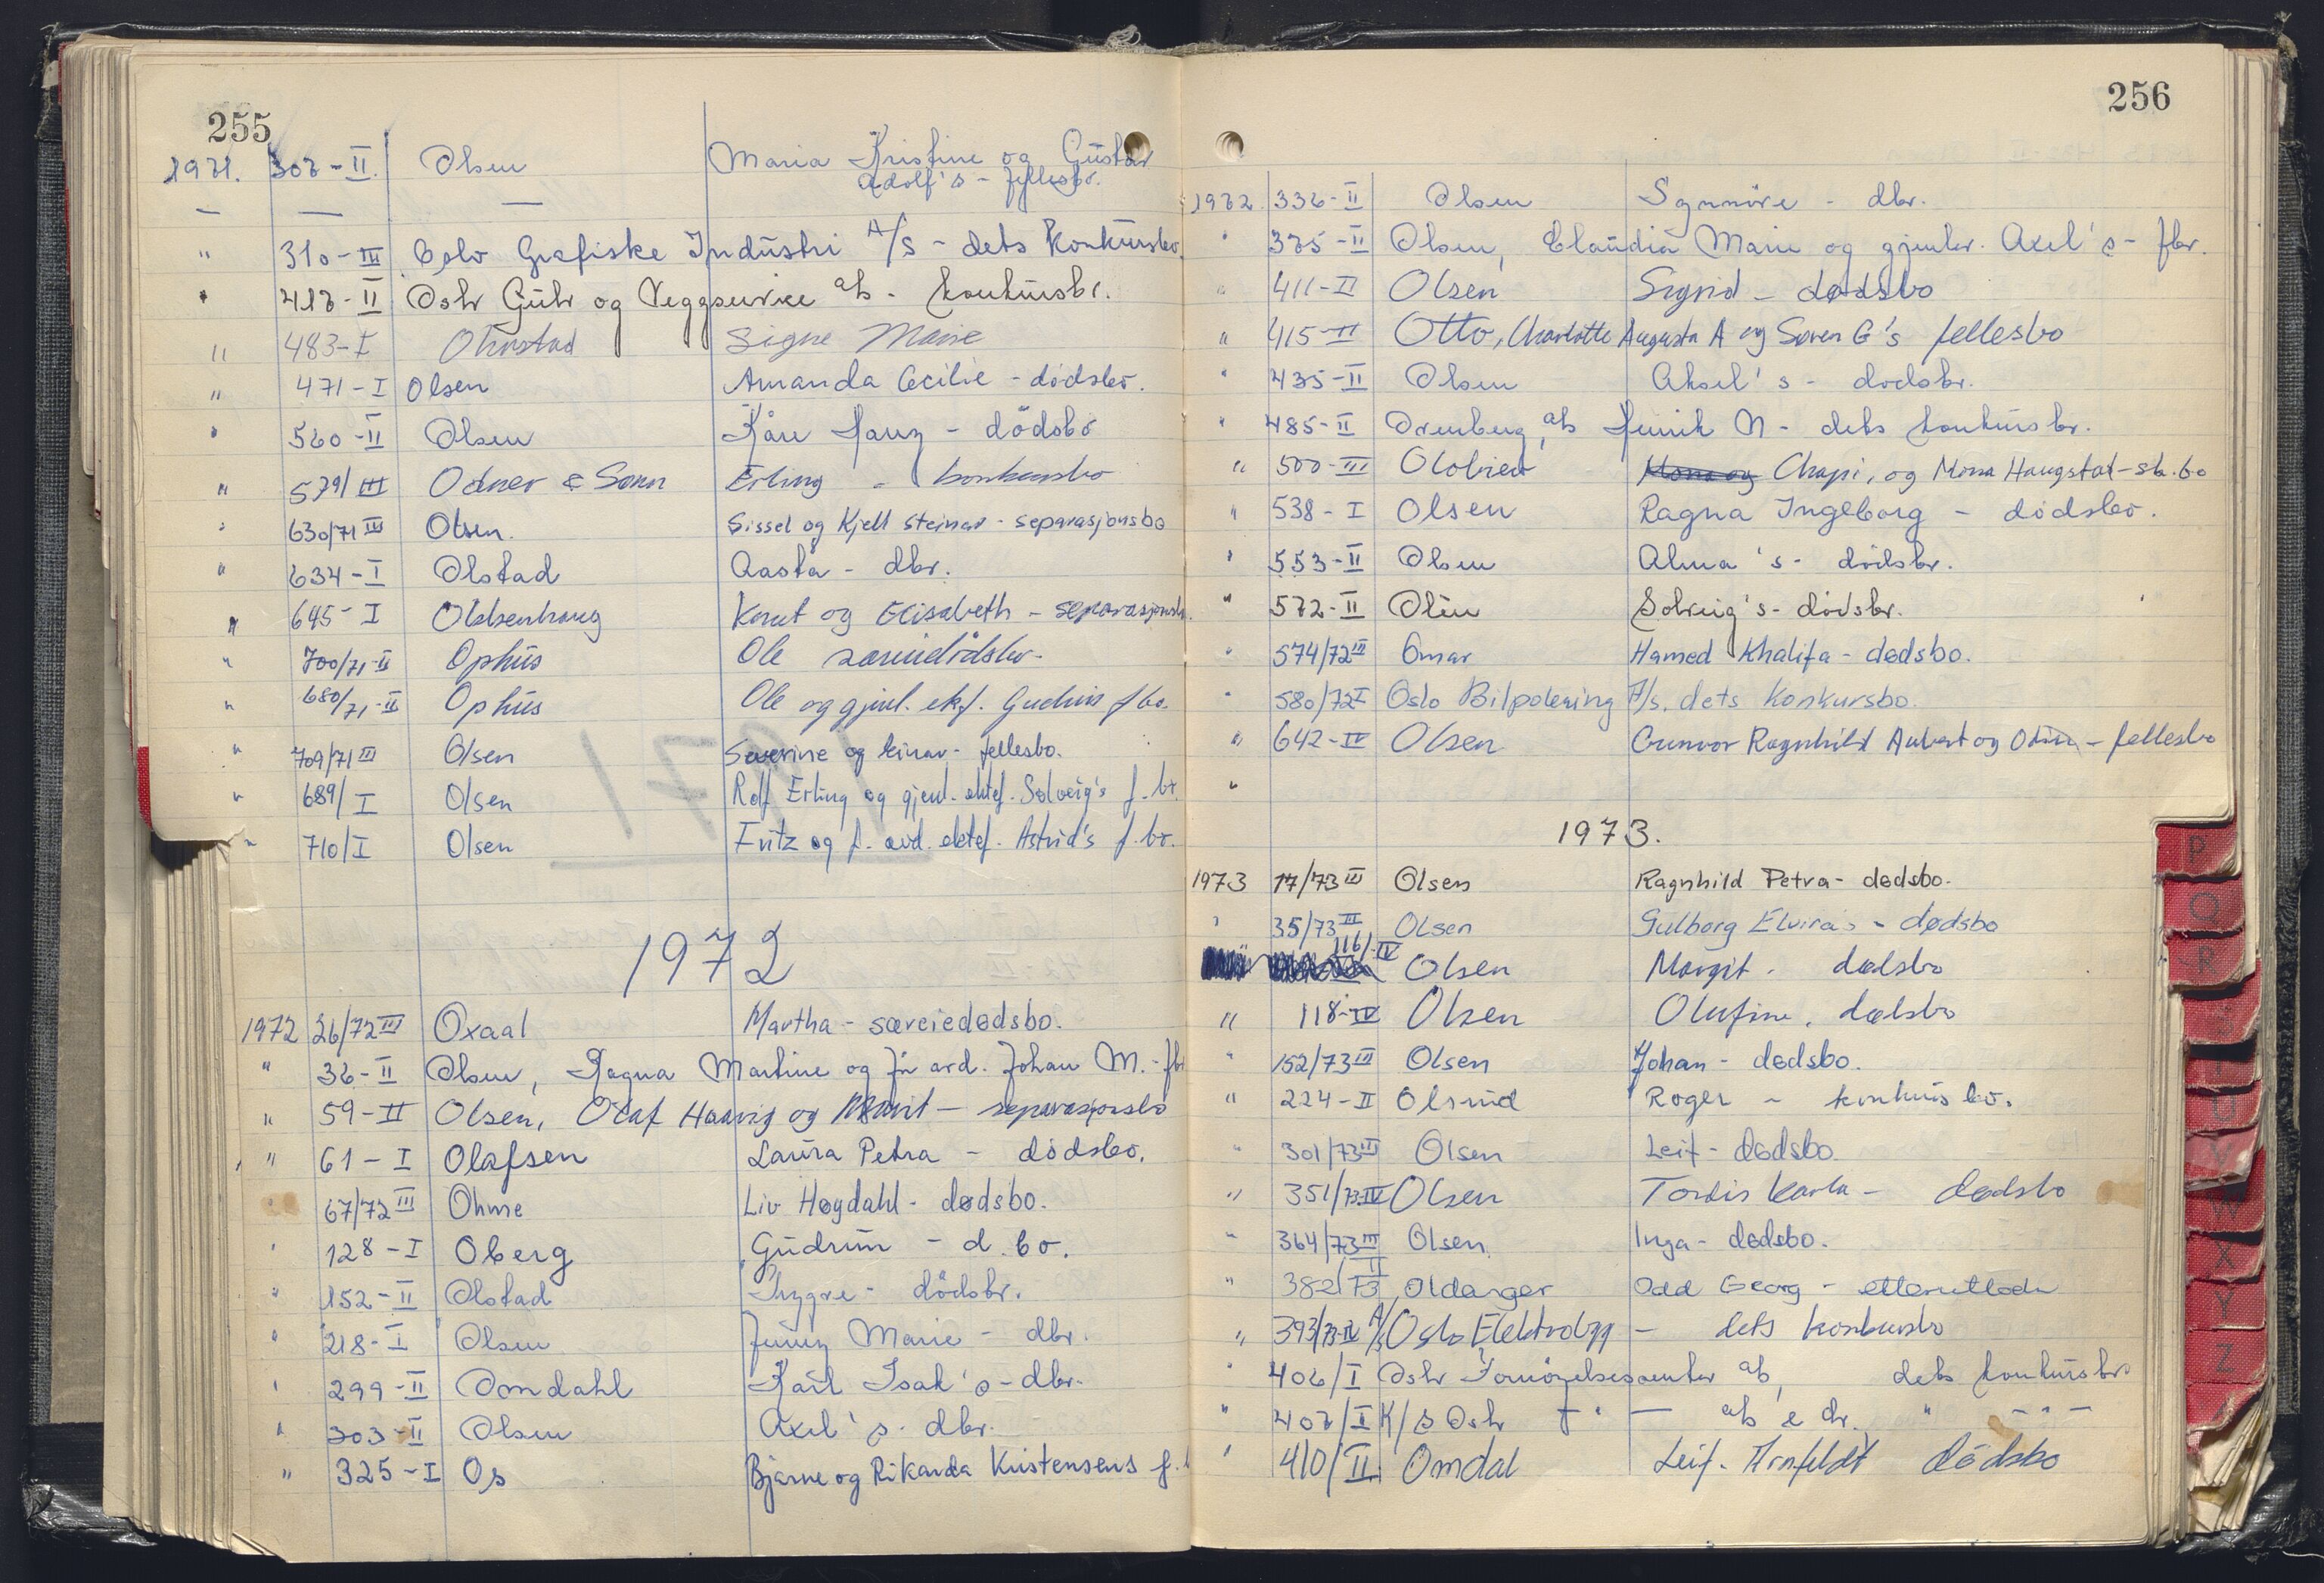 255
1971. 307-II. Olsen Maria Kristine og Gustav
Adolf's - fellesbo.
— — —
" 310-III Oslo Grafiske Industri A/S - dets Konkursbo.
" 417-II Oslo Gulv og Veggservice a/s - konkursbo.
" 483-I Ohnstad Signe Marie
" 471-I Olsen Amanda Cecilie - dødsbo.
" 560-II Olsen Kåre - dödsbo
" 579/III Odner & Sønn Erling - konkursbo
" 630/71 III Olsen. Sissel og Kjell Steinar - separasjonsbo
" 634-I Olstad Aasta - dbo.
" 645-I Knut og Elisabeth - separasjonsb.
" 700/71-II Ophus Ole særeiedødsbo-
" 680/71-II Ophus Ole og gjenl. ekf. Gudrun fbo.
" 709/71 III Olsen Severine og Einar - fellesbo.
" 689/I Olsen Rolf Erling og gjenl. ektef. Solveig's f.bo.
" 710/I Olsen Fritz og f. avd. ektef. Astrid's f.bo.
1972
1972 26/72 III Oxaal Martha - særeiedødsbo.
" 36-II Olsen, Ragna Martine og før avd. Johan M. - fbo
" 59-II Olsen, Olaf Haavig og Marit - separasjonsbo
" 61-I Olafsen Laura Petra - dødsbo.
" 67/72 III Ohme Liv Høgdahl - dødsbo.
" 128-I Oberg Gudrun - d.bo.
" 152-II Olstad Trygve - dödsbo.
" 218-I Olsen Jenny Marie - dbo.
" 299-II Omdahl Karl Isak's - dbo.
" 303-II Olsen Axel's - dbo.
" 325-I Os Bjarne og Rikarda Kristensens f.
256
1972 336-II Olsen Synnöve - dbo.
" 375-II Olsen, Claudia Marie og gjenlev. Axel's - fbo.
" 411-II Olsen Sigrid - dødsbo
" 415-II Otto, Charlotte Augusta A og Søren G's fellesbo
" 435-II Olsen Aksel's - dødsbo.
" 485-II Orenberg, a/s Henrik N - dets konkursbo.
" 500-III Mona og Chapi, og Mona Haugstad - sk.bo
" 538-I Olsen Ragna Ingeborg - dødsbo.
" 553-II Olsen Alma's - dødsbo.
" 572-II Olsen Solveig's - dødsbo.
" 574/72 III Omar Hamed Khalifa - dødsbo.
" 580/72 I Oslo Bilpolering A/s. dets Konkursbo.
" 642-IV Olsen Gunvor Ragnhild Aubert og Odin - fellesbo
"
1973.
1973 17/73 III Olsen Ragnhild Petra - dødsbo.
" 35/73 III Olsen Gulborg Elviras - dødsbo
116/-IV Olsen Margit - dødsbo
" 118-IV Olsen Olufine, dødsbo
" 152/73 III Olsen Johan - dødsbo.
" 224-II Olsrud Roger - konkursbo.
" 301/73 III Olsen Leif - dødsbo.
" 351/73-IV Olsen Tordis Karla - dødsbo
" 364/73 III Olsen Inga - dødsbo.
" 382/73 II Oldanger Odd Georg -
" 393/73-IV A/S Oslo Elektrobygg - dets konkursbo
" 406/I Oslo Fornöyelsessenter a/s, dets konkursbo
" 407/I K/S Oslo — " — a/s & Co. " - " -
" 410/II Omdal Leif. Arnfeldt dødsbo
P
Q
R
S
T
U
V
W
X
Y
Z